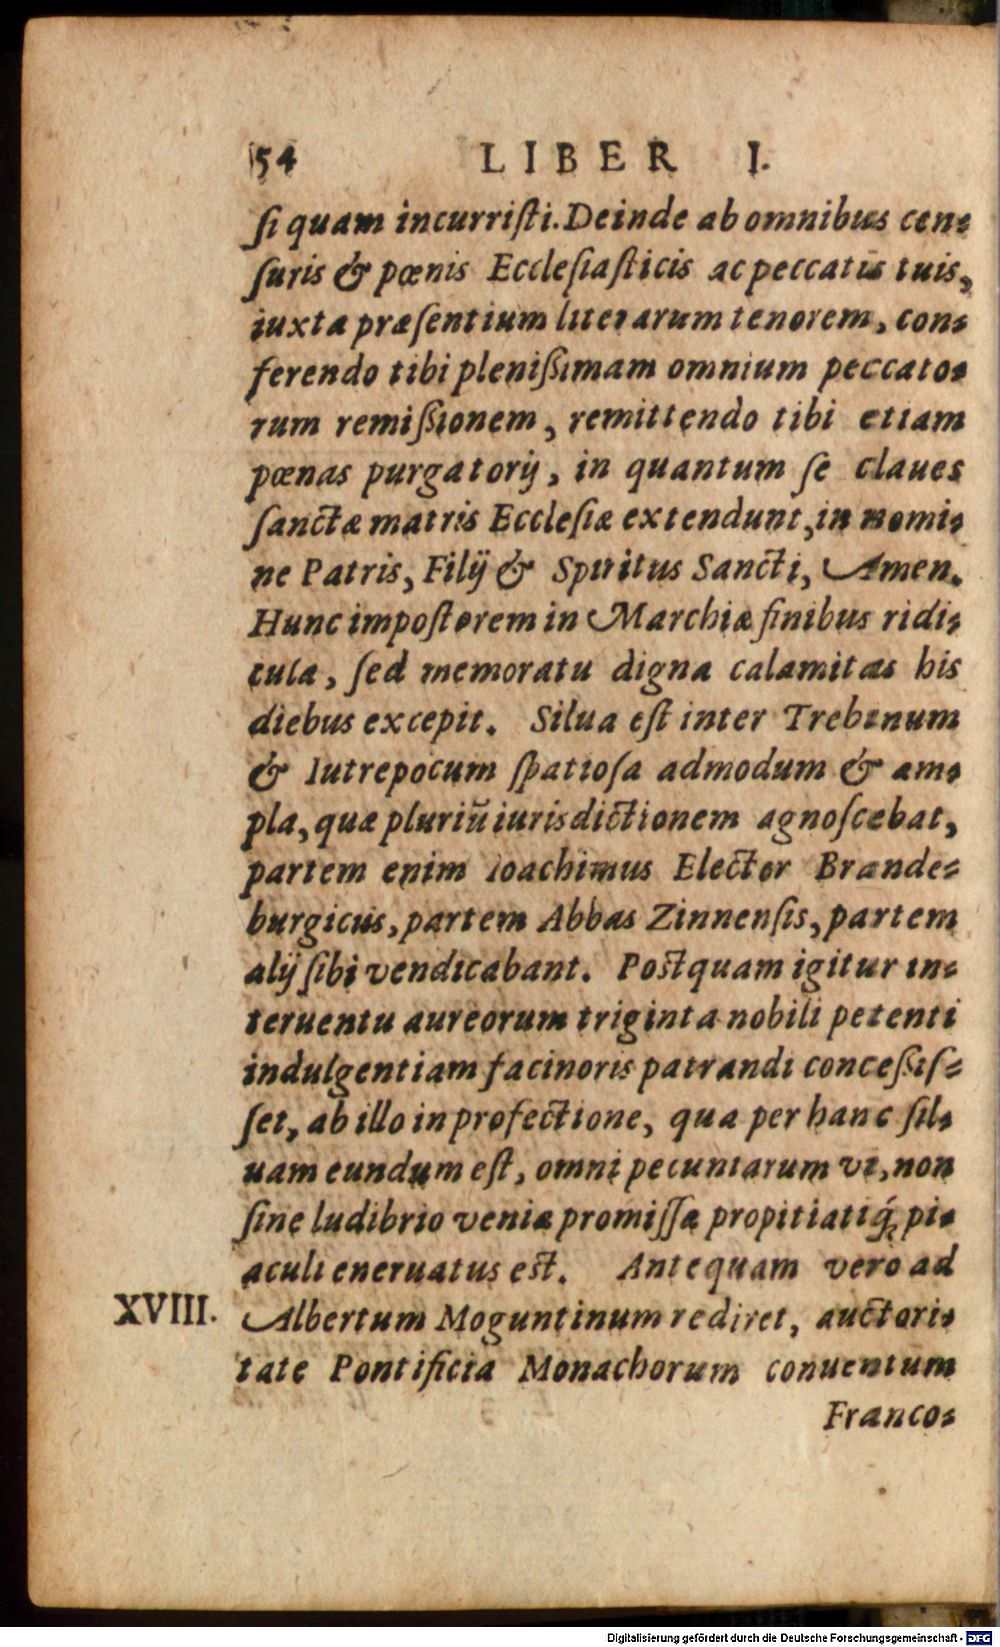 54 LIBER I.
ſi quam incurriſti. Deinde ab omnibus cen-
ſuris & pœnis Eccleſiaſticis ac peccatis tuis,
iuxta præſentium literarum tenorem, con-
ferendo tibi pleniſsimam omnium peccato-
rum remiſsionem, remittendo tibi etiam
pœnas purgatorij, in quantum ſe claues
ſanctæ matris Eccleſiæ extendunt, in nomi-
ne Patris, Filij & Spiritus Sancti, Amen.
Hunc impoſtorem in Marchiæ finibus ridi-
cula, ſed memoratu digna calamitas his
diebus excepit. Silua eſt inter Trebinum
& Iutrepocum ſpatioſa admodum & am-
pla, quæ pluriũ iurisdictionem agnoſcebat,
partem enim Ioachimus Elector Brande-
burgicus, partem Abbas Zinnenſis, partem
alij ſibi vendicabant. Poſtquam igitur in-
teruentu aureorum triginta nobili petenti
indulgentiam facinoris patrandi conceſsiſ-
ſet, ab illo in profectione, qua per hanc ſil-
uam eundum eſt, omni pecuniarum vi, non
ſine ludibrio veniæ promiſſæ propitiatiq́; pi-
aculi eneruatus eſt. Antequam vero ad
XVIII. Albertum Moguntinum rediret, auctori-
tate Pontificia Monachorum conuentum
Franco-
Digitalisierung gefördert durch die Deutsche Forschungsgemeinschaft - DFG